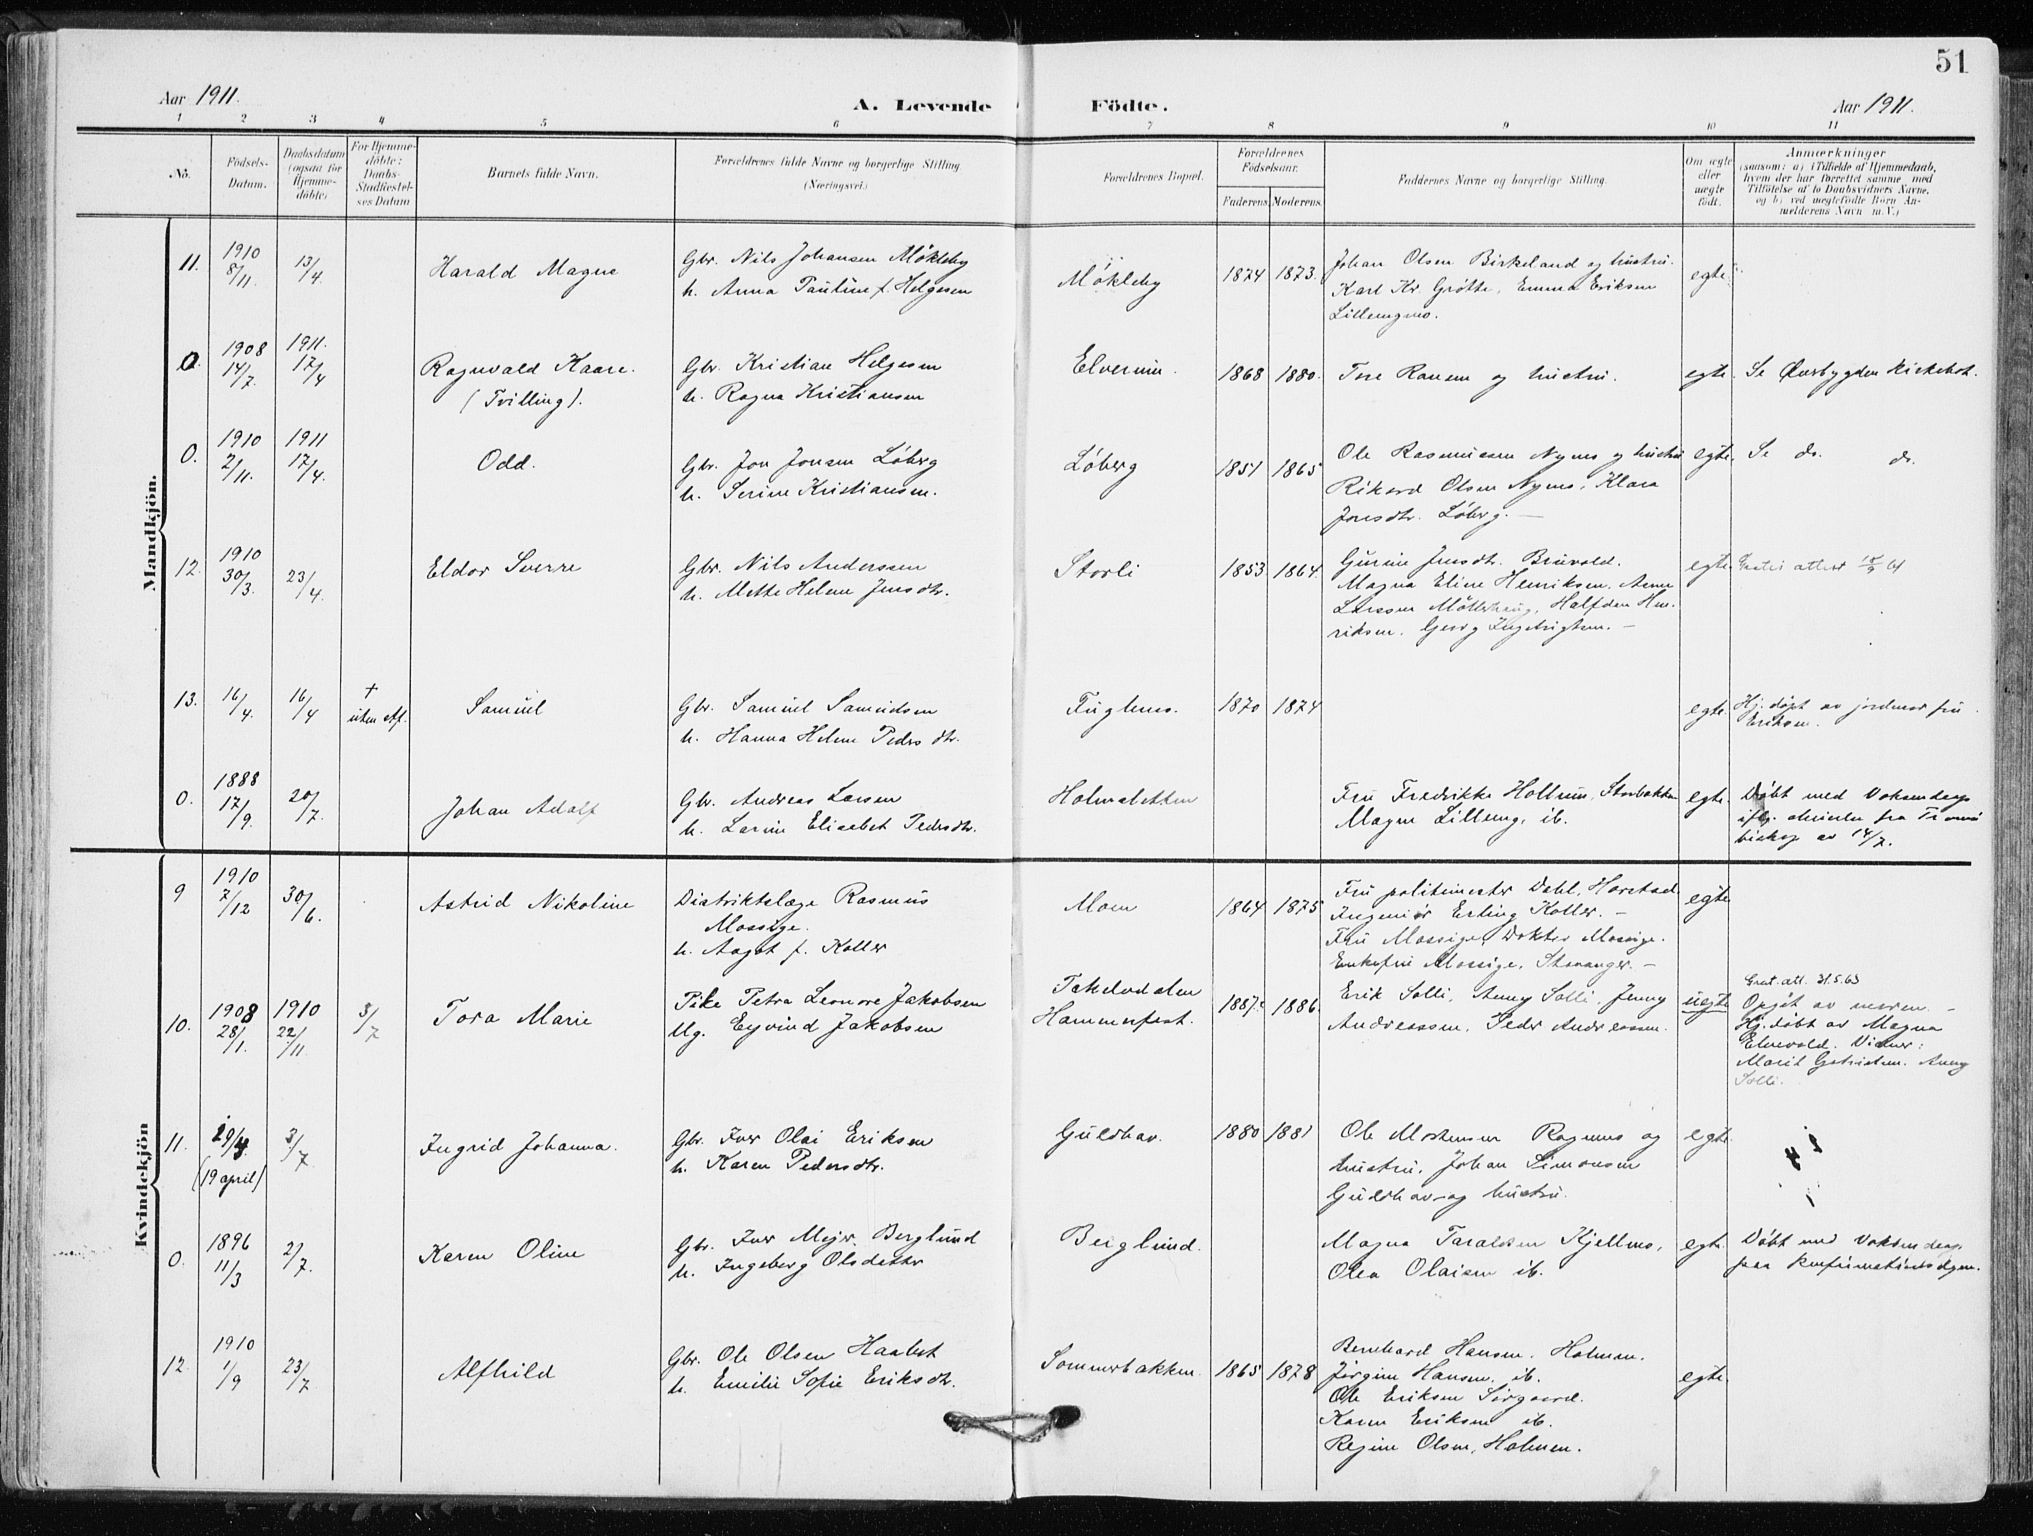 51
Aar 1911.
A. Levende Födte.
Aar 1911.
1 2 3 4 5 6 7 8 9 10 11
No.
Födsels-
Datum.
Daabsdatum
(ogsaa for
Hjemme-
döbte)
For Hjemme-
döbte:
Daabs-
Stadfæstel-
ses Datum
Barnets fulde Navn.
Forældrenes fulde Navne og borgerlige Stilling.
(Næringsvei.)
Forældrenes Bopæl.
Forældrenes
Födselsaar.
Faderens. Moderens.
Faddernes Navne og borgerlige Stilling.
Om ægte
eller
uægte
födt.
Anmærkninger
(saasom: a) i Tilfælde af Hjemmedaab,
hvem der har forrettet samme med
Tilföielse af to Daabsvidners Navne,
og b) ved uægtefödte Börn An-
melderens Navn m. V.)
Mandkjön.
11. 1910 8/11. 13/4 Harald Magne
Gbr. Nils Johansen Møkleby
h. Anna Pauline f. Helgesen
Møkleby 1874 1873.
Johan Olsen Birkeland og hustru.
Karl Kr. Grøtte, Emma Eriksen
Lillemgmo.
egte.
0. 1908 14/7. 1911. 17/4 Ragnvald Kaare.
(Tvilling).
Gbr. Kristian Helgesen
h. Ragna Kristiansen
Elverum. 1868 1880.
Tore Ransen og hustru.
egte.
Se Øverbygden kirkebok.
0. 1910 2/11. 1911 17/4. Odd.
Gbr. Jon Jonsen Løberg
h. Serine Kristiansen.
Løberg 1851 1865
Ole Rasmussen Nymo og hustru
Rikard Olsen Nymo, Klara
Jonsdtr. Løberg. —
egte.
Se do. do.
12. 1910 30/3. 23/4. Eldor Sverre
Gbr. Nils Anderssen
h. Mette Helene Jensdtr.
Storli 1853 1864.
Gurine Jensdtr. Bruvold.
Magna Eline Henriksen, Arne
Larssen Møllerhaug, Halfdan Hen-
riksen. Georg Ingebrigtsen. —
egte.
13. 16/4. 16/4 † uten Af. Samuel
Gbr. Samuel Samuelsen
h. Hanna Helene Peders dtr.
Fuglemo. 1870 1874
egte.
Hj. døpt av jordmor fru
Eriksen.
0. 1888 17/9. 20/7. Johan Adolf
Gbr. Andreas Larsen
h. Lorine Elisabet Pedersdtr.
Holmsletten
Fru Fredrikke Hollum, Storbakken
Magne Lilleng, ib.
egte.
Døbt med voksendaap
ifg. skrivelse fra Tromsø
biskop av 14/7.
Kvindekjön
9 1910 7/12 30/6. Astrid Nikoline
Distriktslæge Rasmus
Mossige.
h. Aagot f. Koller
Moen 1864 1875
Fru politimester Dahl, Harstad.
Ingeniør Erling Koller. —
Fru Mossige, Doktor Mossige.
Enkefru Mossige, Stavanger. —
egte
10. 1908 28/1. 1910 22/11 3/7 Tora Marie
Pike Petra Leonore Jakobsen
Ug. Eyvind Jakobsen
Takelvdalen
Hammerfest. 1887. 1886.
Erik Solli, Anny Solli, Jenny
Andreassen, Peder Andreassen.
uegte
Grat. att. 31.5.63
Opgit av moren. —
Hj. døbt av Magna
Elvevold. Vidner:
Marit Gabrielsen. Anny
Solli.
11. 29/4 3/7. Ingrid Johanna.
(19 april)
Gbr. Iver Olai Eriksen
h. Karen Pedersdtr.
Guldhav. 1880 1881
Ole Mortensen Ragnmo og
hustru, Johan Simonsen
Guldhav og hustru.
egte.
0. 1896 11/3 2/7. Karen Oline
Gbr. Iver Mejer Berglund
h. Ingeborg Olsdatter
Berglund.
Magna Taraldsen Kjellmo,
Olea Olaisen ib.
egte.
Døbt med voksendaap
paa konfirmationsdagen.
12. 1910 1/9 23/7 Alfhild
Gbr. Ole Olsen Haabet
h. Emilie Sofie Eriksdtr.
Sommerbakken 1865 1878
Bernhard Hansen. Holmen.
Jørgine Hansen. ib.
Ole Eriksen Sørgaard.
Karen Eriksen ib.
Regine Olsen, Holmen.
egte.